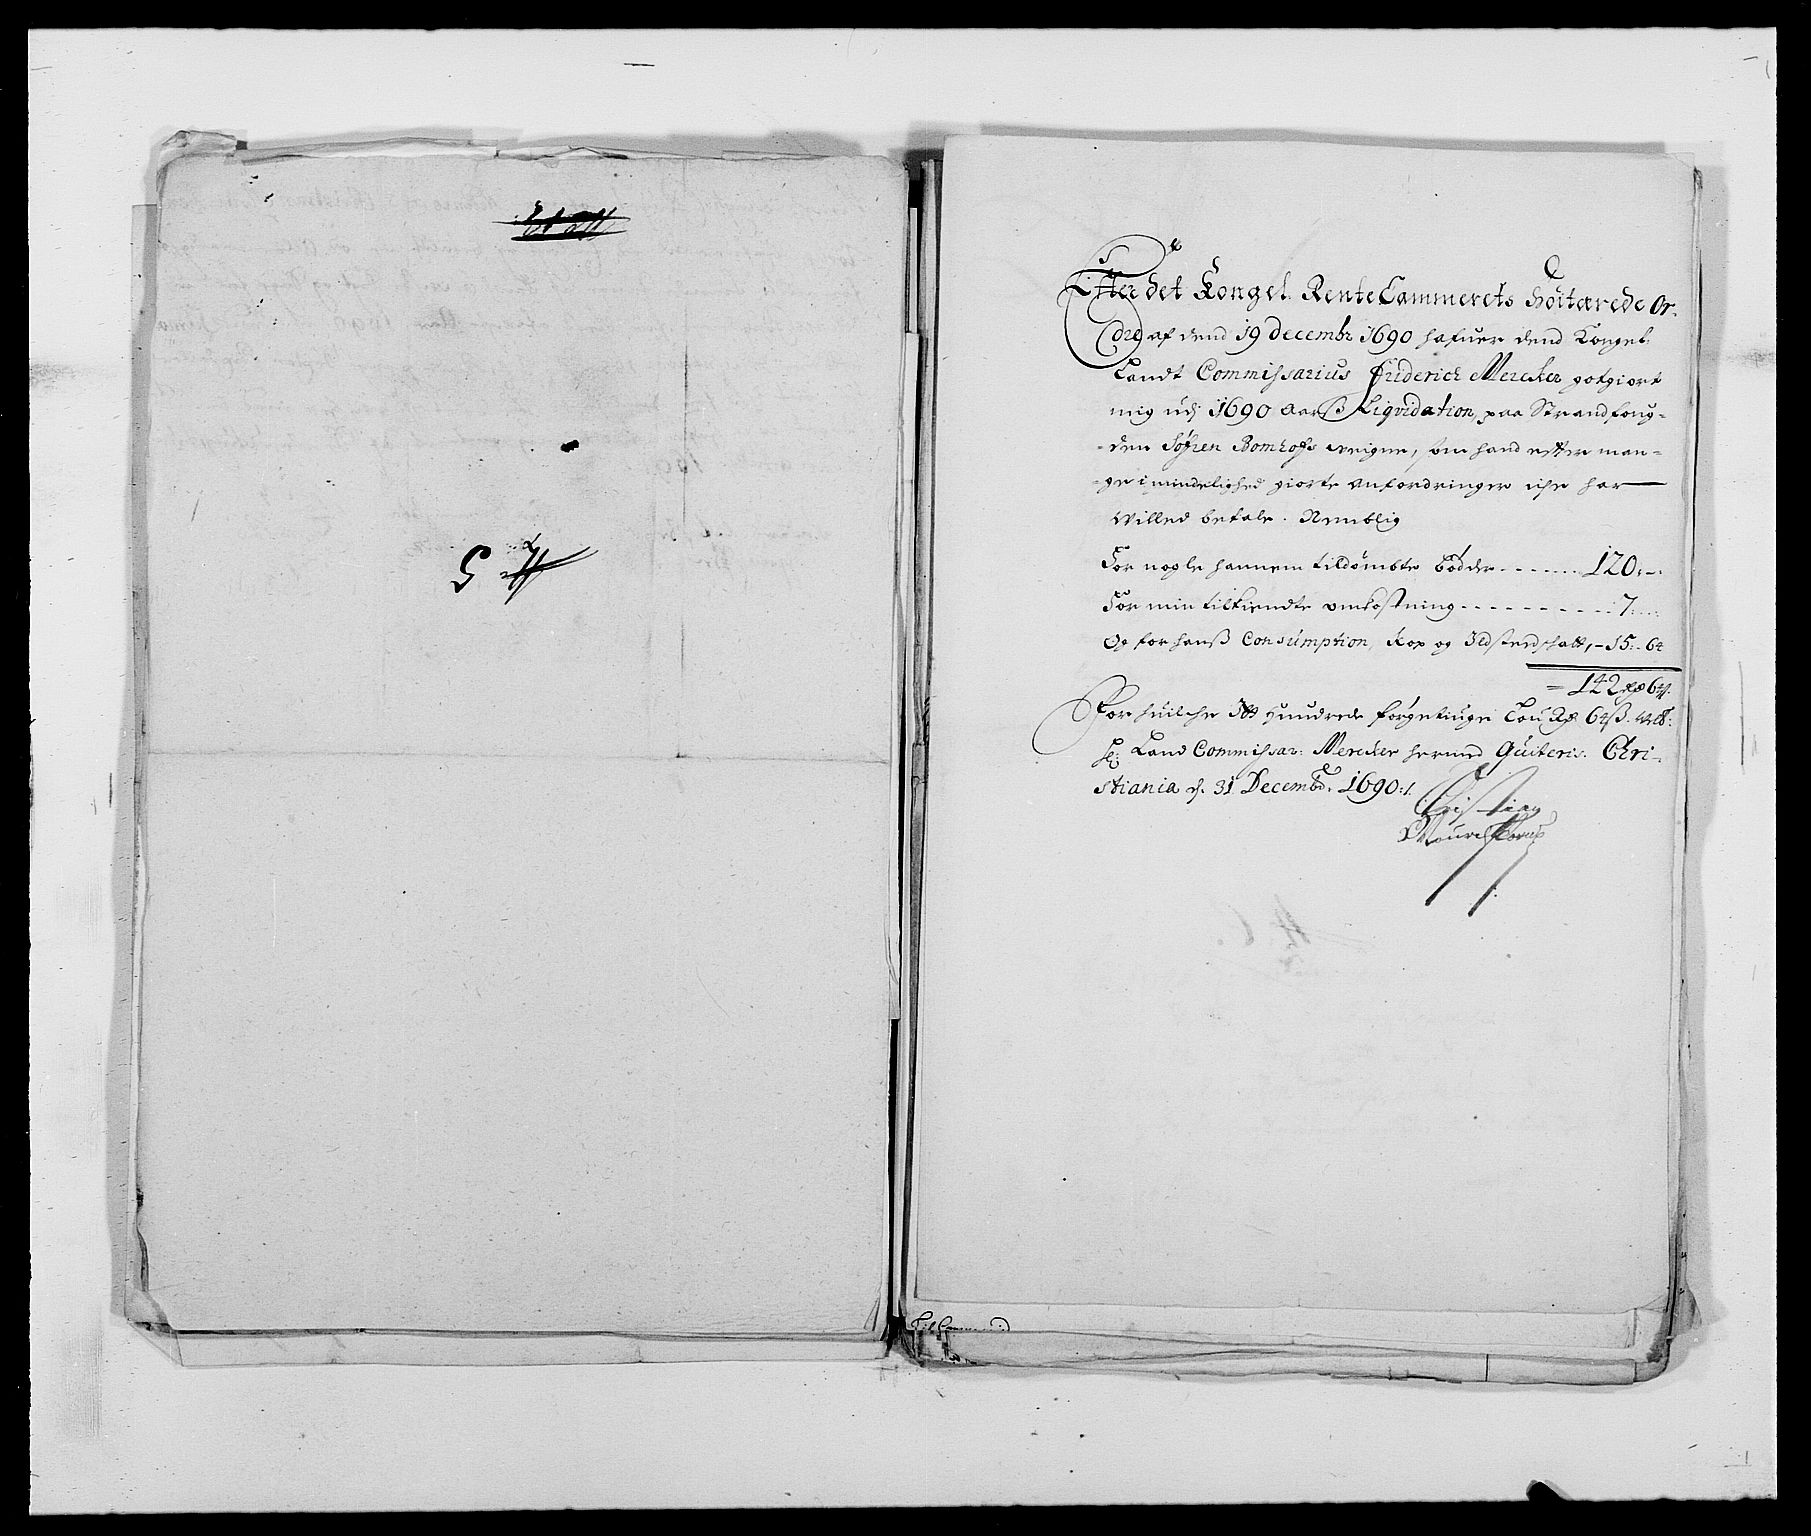 5
Efter det Kongel. Rente Cammerets Höitærede Or-
dre af dend 19 decembr 1690 hafuer dend Kongel:
Landt Commissarius Friderich Mercker gotgiort
mig udj 1690 Aarß Liqvidation, paa Strandfoug-
-den Söfren Bomhofs weigne, som hand efter man-
-ge i mindelighed giorte anfordringer iche har
willed betale. Nemblig
For nogle hannem tildömbte böder - - - - - - 120:-:
For min tilkiendte omkostning - - - - - - - - - - 7:
Og for hanß Consumption, Kop og Ildstedshatt,- 15:- 64
= 142 Rdr 64 s:
For huilche Itt Hundrede förgetiuge Tou Rdr 64 ß.
Land Commissar: Mercker hermed Quiteris. Chri-
stiania d. 31 Decembr. 1690:/.
Christian